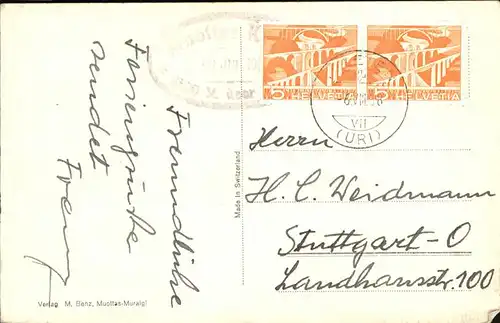 Freundliche
Feriengrüße
sendet
Franz
Verlag M. Benz, Muottas-Muraigl
Made in Switzerland
5 HELVETIA
5 HELVETIA
VII
(URI)
Herrn
H. C. Weidmann
Stuttgart-O
Landhausstr. 100